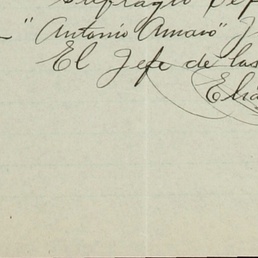 Sufragio
"Antonio Amaro"
El Jefe de las